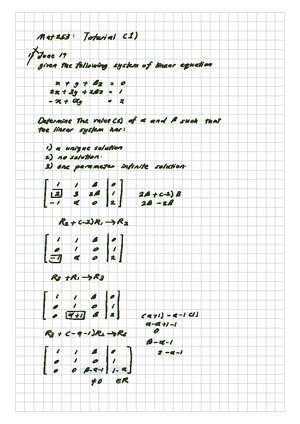 Mat263: Tutorial (1)
1) June 19
given the following system of linear equation
x + y + βz = 0
2x + 3y + 2βz = 1
-x + αy = 2
Determine the value(s) of α and β such that
the linear system has:
1) a unique solution
2) no solution.
3) one parameter infinite solution.
1 1 β 0
2 3 2β 1 2β + (-2) β
-1 α 0 2 2β - 2β
R2 + (-2)R1 → R2
1 1 β 0
0 1 0 1
-1 α 0 2
R3 + R1 → R3
1 1 β 0
0 1 0 1
0 α+1 β 2
(α+1) - α-1 (1)
α-α+1-1
R3 + (-α-1)R2 → R3 0
β-α-1
1 1 β 0 2-α-1
0 1 0 1
0 0 β-α-1 1-α
≠0 ∈R